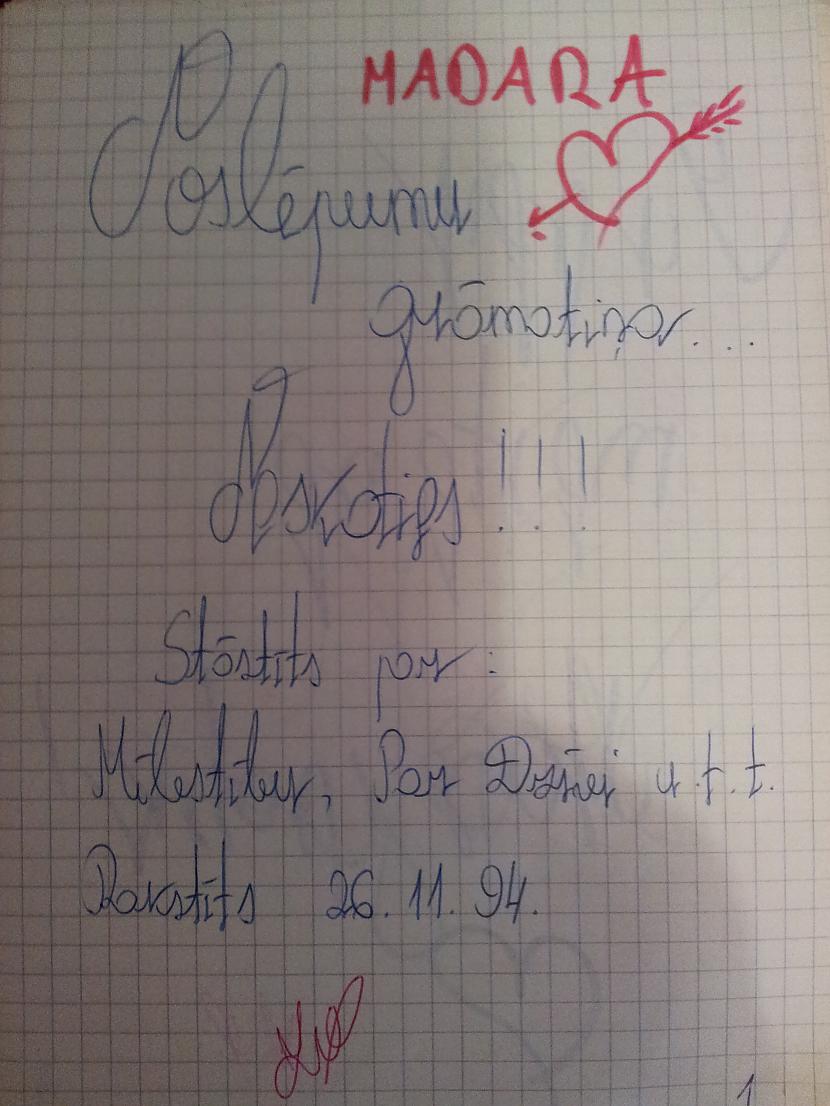 MADARA
Poslēpumu
grāmatiņa...
Apskaties!!!
Stāstīts par:
Mīlestību, Par Dzīvi u.t.t.
Rakstīts 26.11.94.
1